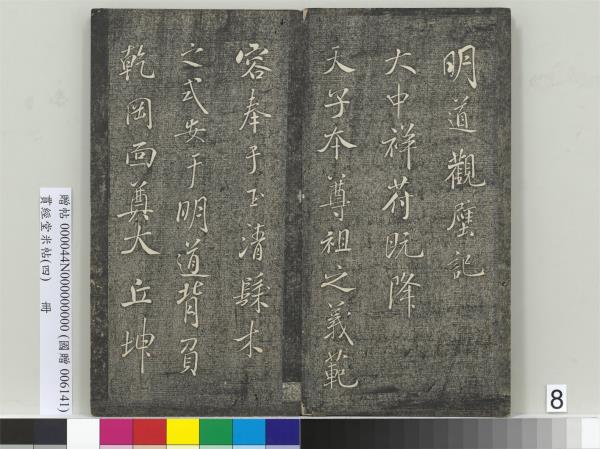 明道觀壁記
大中祥苻既降
天子本尊祖之義範
容奉于玉清髹木
之式安于明道背負
乾岡面奠大丘坤
贈帖 000044N000000000 (國贈 006141)
貫經堂米帖(四) 冊
8